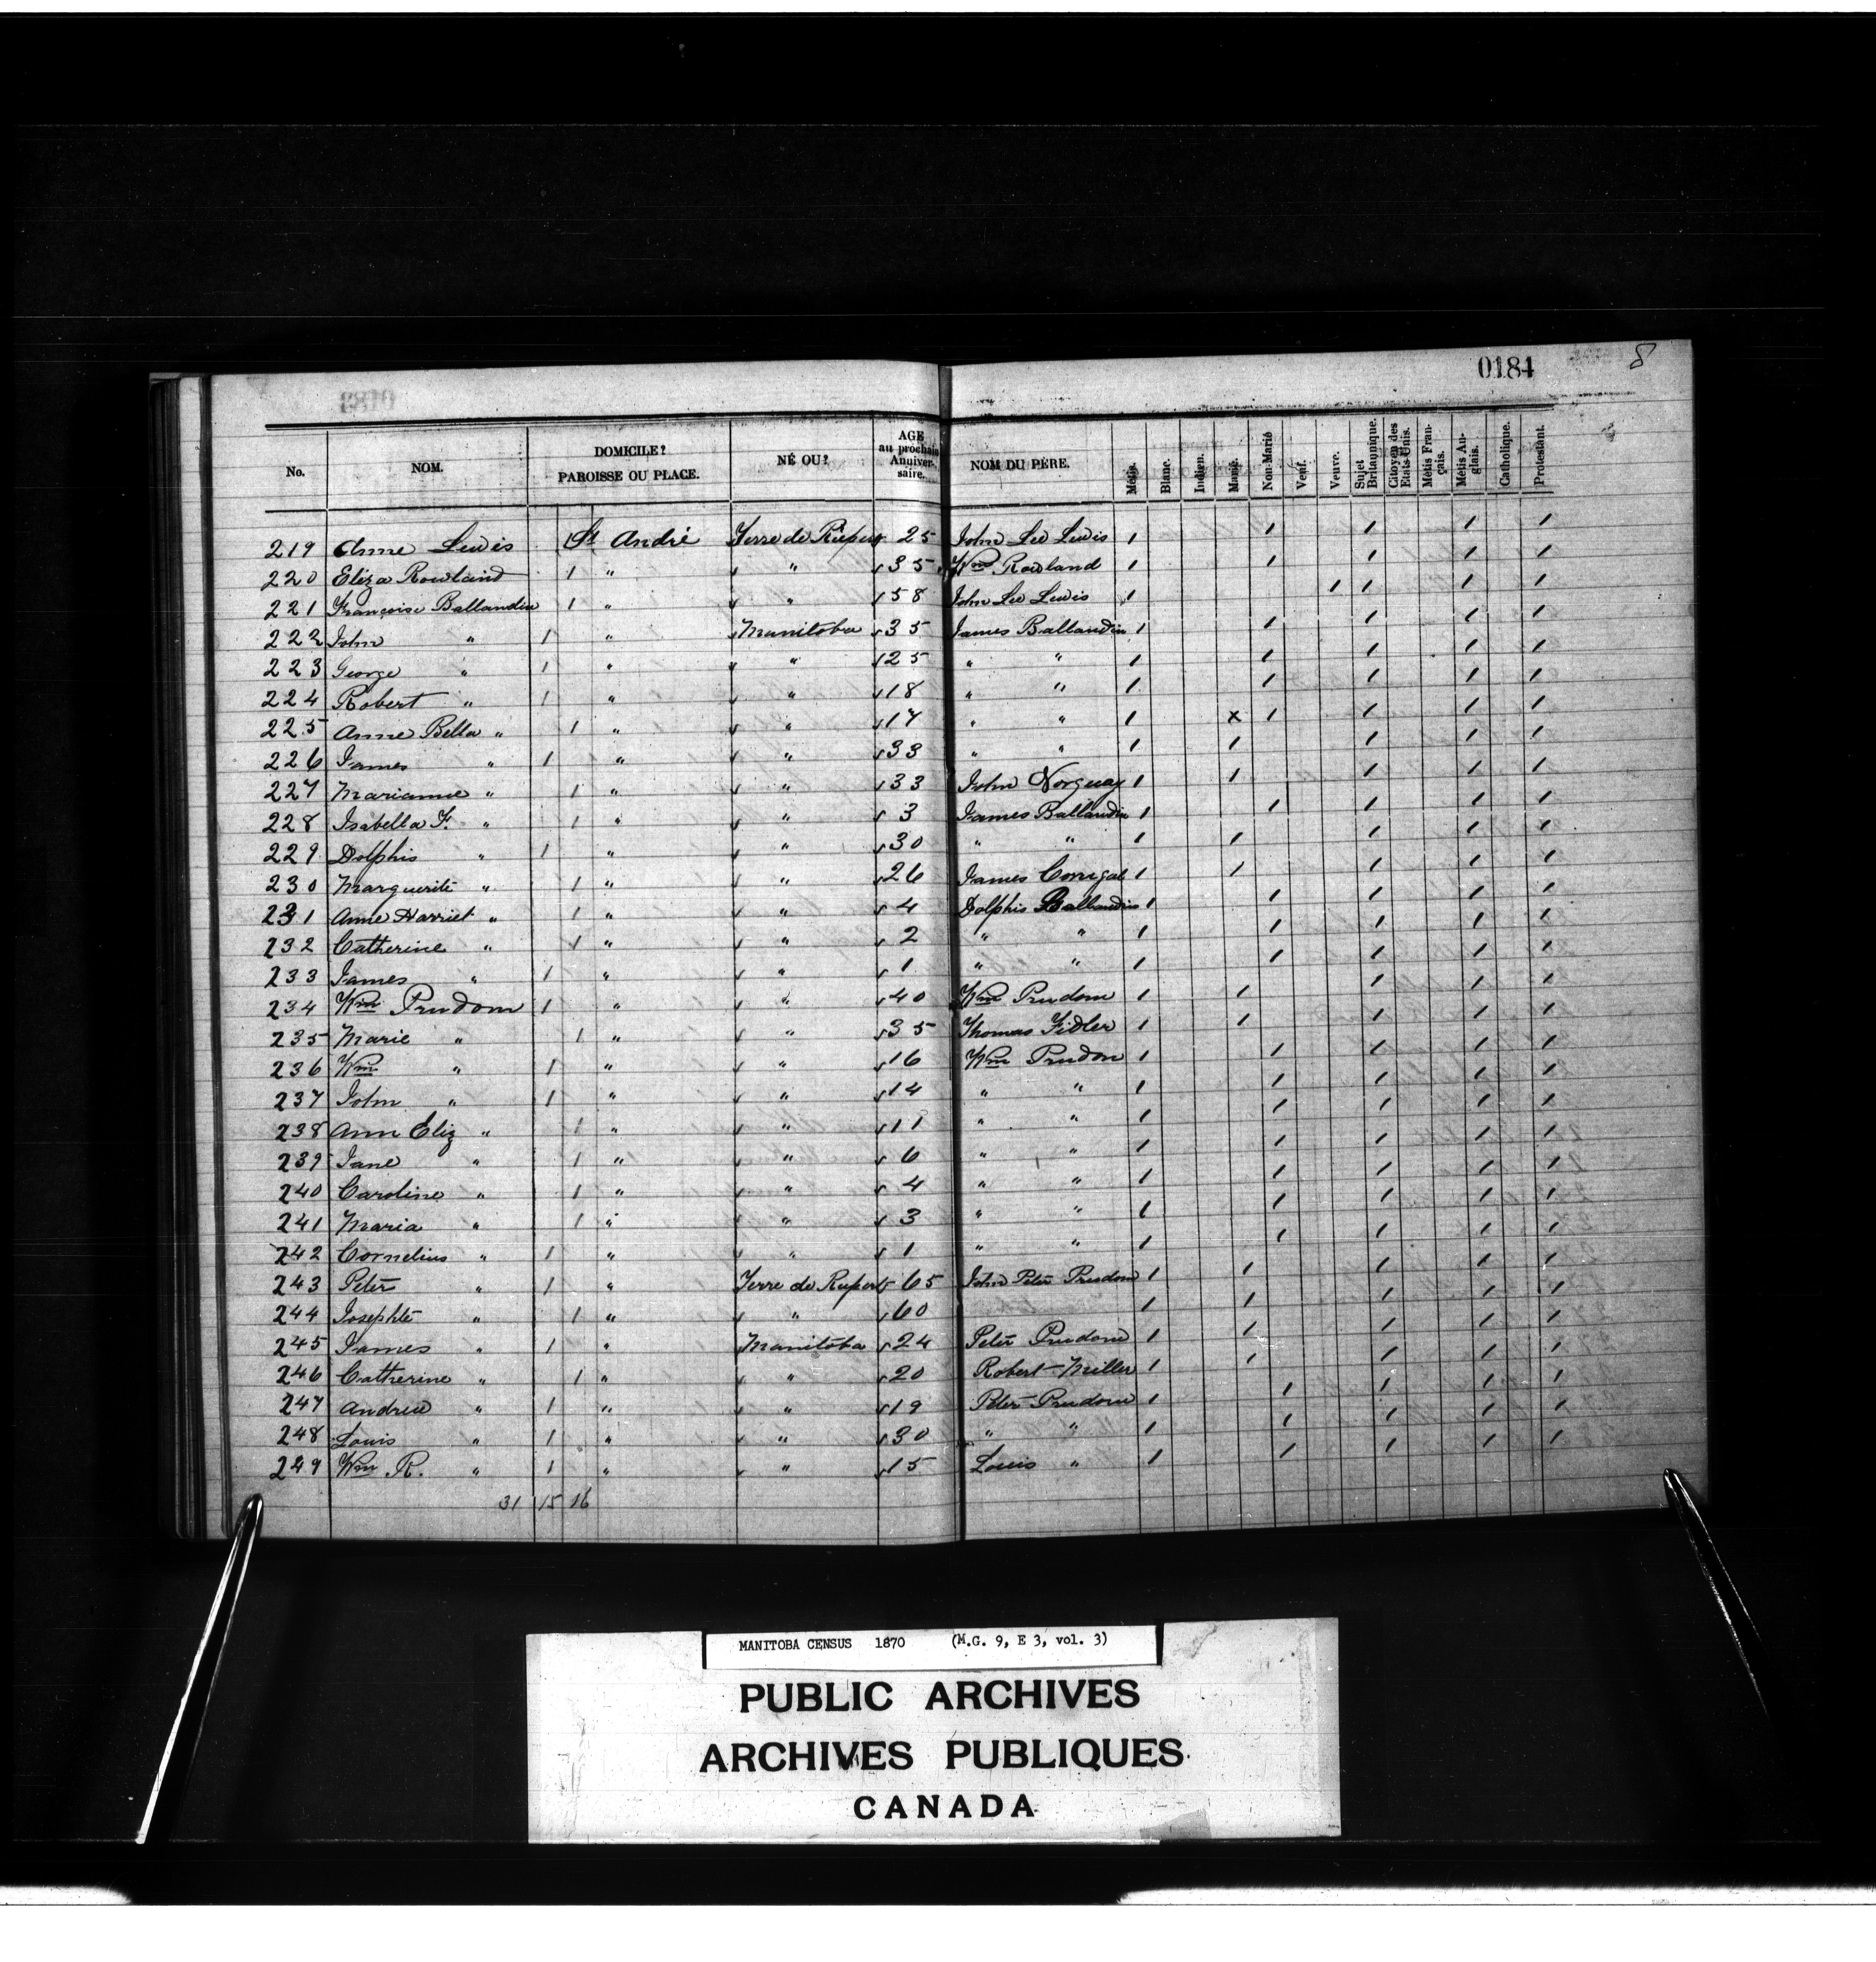 0184 8
No. NOM. DOMICILE? PAROISSE OU PLACE. NÉ OU? AGE au prochain Anniversaire. NOM DU PÈRE. Métis. Blanc. Indien. Marié. Non-Marié Veuf. Veuve. Sujet Britannique. Citoyen des Etats-Unis. Métis Français. Métis Anglais. Catholique. Protestant.
219 Anne Lewis 1 St André Terre de Rupert 25 John Lee Lewis 1 1 1 1 1
220 Eliza Rowland 1 " " 35 Wm Rowland 1 1 1 1 1
221 Francoise Ballandin 1 " " 58 John Lee Lewis 1 1 1 1 1
222 John " 1 " Manitoba 35 James Ballandin 1 1 1 1 1
223 George " 1 " " 25 " " 1 1 1 1 1
224 Robert " 1 " " 18 " " 1 1 1 1 1
225 Anne Bella " 1 " " 17 " " 1 x 1 1 1 1
226 James " 1 " " 33 " " 1 1 1 1 1
227 Marianne " 1 " " 33 John Norquay 1 1 1 1 1
228 Isabella F. " 1 " " 3 James Ballandin 1 1 1 1 1
229 Dolphis " 1 " " 30 " " 1 1 1 1 1
230 Marguerite " 1 " " 26 James Corrigal 1 1 1 1 1
231 Anne Harriet " 1 " " 4 Dolphis Ballandin 1 1 1 1 1
232 Catherine " 1 " " 2 " " 1 1 1 1 1
233 James " 1 " " 1 " " 1 1 1 1 1
234 Wm Prudom 1 " " 40 Wm Prudom 1 1 1 1 1
235 Marie " 1 " " 35 Thomas Fidler 1 1 1 1 1
236 Wm " 1 " " 16 Wm Prudom 1 1 1 1 1
237 John " 1 " " 14 " " 1 1 1 1 1
238 Ann Eliz " 1 " " 11 " " 1 1 1 1 1
239 Jane " 1 " " 6 " " 1 1 1 1 1
240 Caroline " 1 " " 4 " " 1 1 1 1 1
241 Maria " 1 " " 3 " " 1 1 1 1 1
242 Cornelius " 1 " " 1 " " 1 1 1 1 1
243 Peter " 1 " Terre de Rupert 65 John Peter Prudom 1 1 1 1 1
244 Josephte " 1 " " 60 1 1 1 1 1
245 James " 1 " Manitoba 24 Peter Prudom 1 1 1 1 1
246 Catherine " 1 " " 20 Robert Miller 1 1 1 1 1
247 Andrew " 1 " " 19 Peter Prudom 1 1 1 1 1
248 Louis " 1 " " 30 " " 1 1 1 1 1
249 Wm R. " 1 " " 15 Louis " 1 1 1 1 1
31 15 16
MANITOBA CENSUS 1870 (M.G. 9, E 3, vol. 3)
PUBLIC ARCHIVES
ARCHIVES PUBLIQUES
CANADA